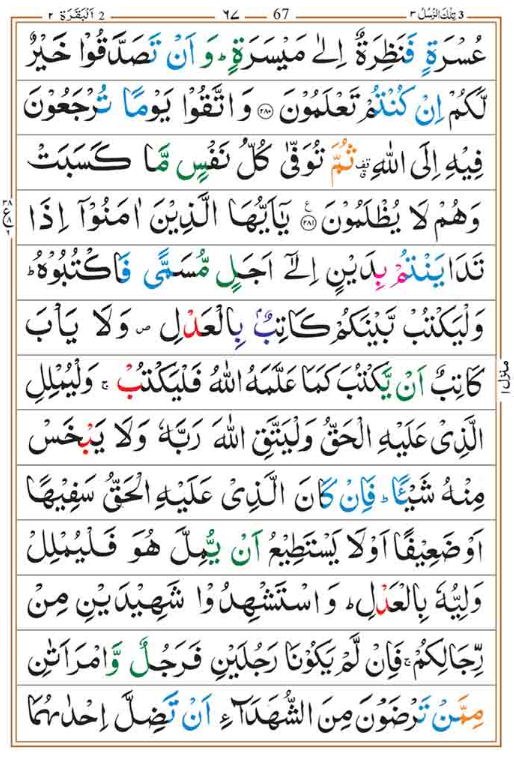 ٢ اَلْبَقَرَة 2 ٦٧ 67 تِلْكَ الرُّسُلُ ٣ 3
عُسْرَةٍ فَنَظِرَةٌ اِلٰى مَيْسَرَةٍ ؕ وَ اَنْ تَصَدَّقُوْا خَيْرٌ
لَّكُمْ اِنْ كُنْتُمْ تَعْلَمُوْنَ ﴿۲۸۰﴾ وَ اتَّقُوْا يَوْمًا تُرْجَعُوْنَ
فِيْهِ اِلَى اللّٰهِ ثُمَّ تُوَفّٰى كُلُّ نَفْسٍ مَّا كَسَبَتْ
وَهُمْ لَا يُظْلَمُوْنَ ﴿۲۸۱﴾ يٰۤاَيُّهَا الَّذِيْنَ اٰمَنُوْۤا اِذَا
تَدَايَنْتُمْ بِدَيْنٍ اِلٰۤى اَجَلٍ مُّسَمًّى فَاكْتُبُوْهُ ؕ
وَلْيَكْتُبْ بَّيْنَكُمْ كَاتِبٌۢ بِالْعَدْلِ ۪ وَلَا يَاْبَ
كَاتِبٌ اَنْ يَّكْتُبَ كَمَا عَلَّمَهُ اللّٰهُ فَلْيَكْتُبْ ۚ وَلْيُمْلِلِ
الَّذِيْ عَلَيْهِ الْحَقُّ وَلْيَتَّقِ اللّٰهَ رَبَّهٗ وَلَا يَبْخَسْ
مِنْهُ شَيْـًٔا ؕ فَاِنْ كَانَ الَّذِيْ عَلَيْهِ الْحَقُّ سَفِيْهًا
اَوْ ضَعِيْفًا اَوْ لَا يَسْتَطِيْعُ اَنْ يُّمِلَّ هُوَ فَلْيُمْلِلْ
وَلِيُّهٗ بِالْعَدْلِ ؕ وَ اسْتَشْهِدُوْا شَهِيْدَيْنِ مِنْ
رِّجَالِكُمْ ۚ فَاِنْ لَّمْ يَكُوْنَا رَجُلَيْنِ فَرَجُلٌ وَّامْرَاَتٰنِ
مِمَّنْ تَرْضَوْنَ مِنَ الشُّهَدَآءِ اَنْ تَضِلَّ اِحْدٰىهُمَا
منزل ١